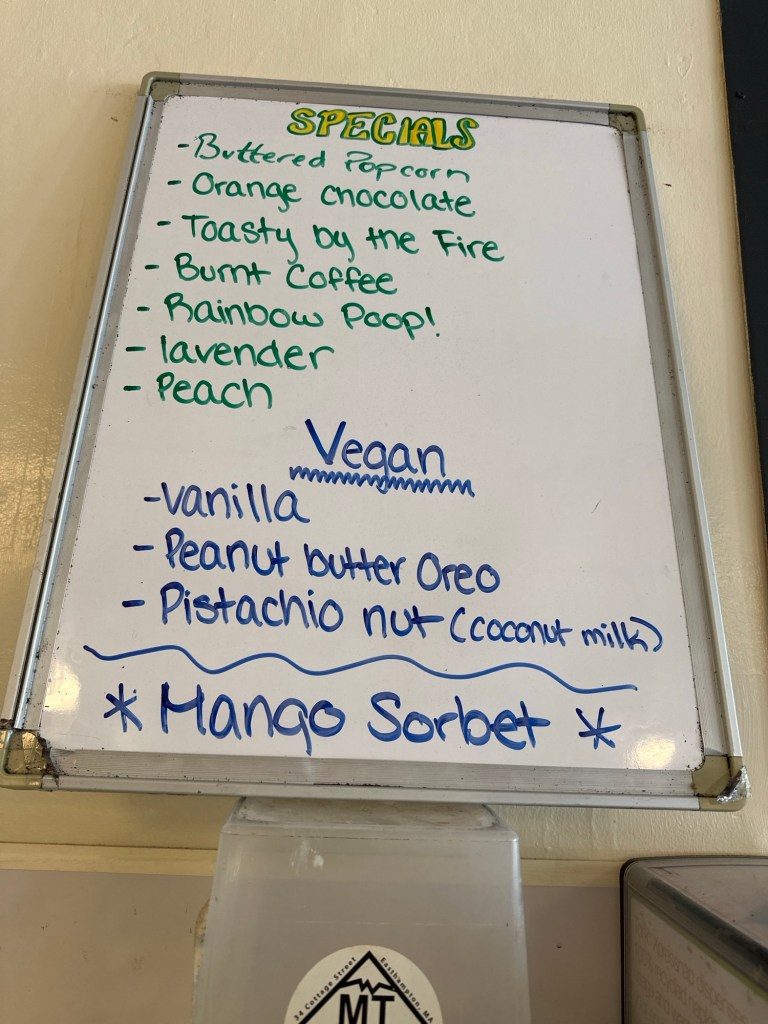 SPECIALS
- Buttered Popcorn
- Orange chocolate
- Toasty by the Fire
- Burnt Coffee
- Rainbow Poop!
- lavender
- Peach
Vegan
- vanilla
- Peanut butter Oreo
- Pistachio nut (coconut milk)
* Mango Sorbet *
34 Cottage Street Easthampton, MA
MT